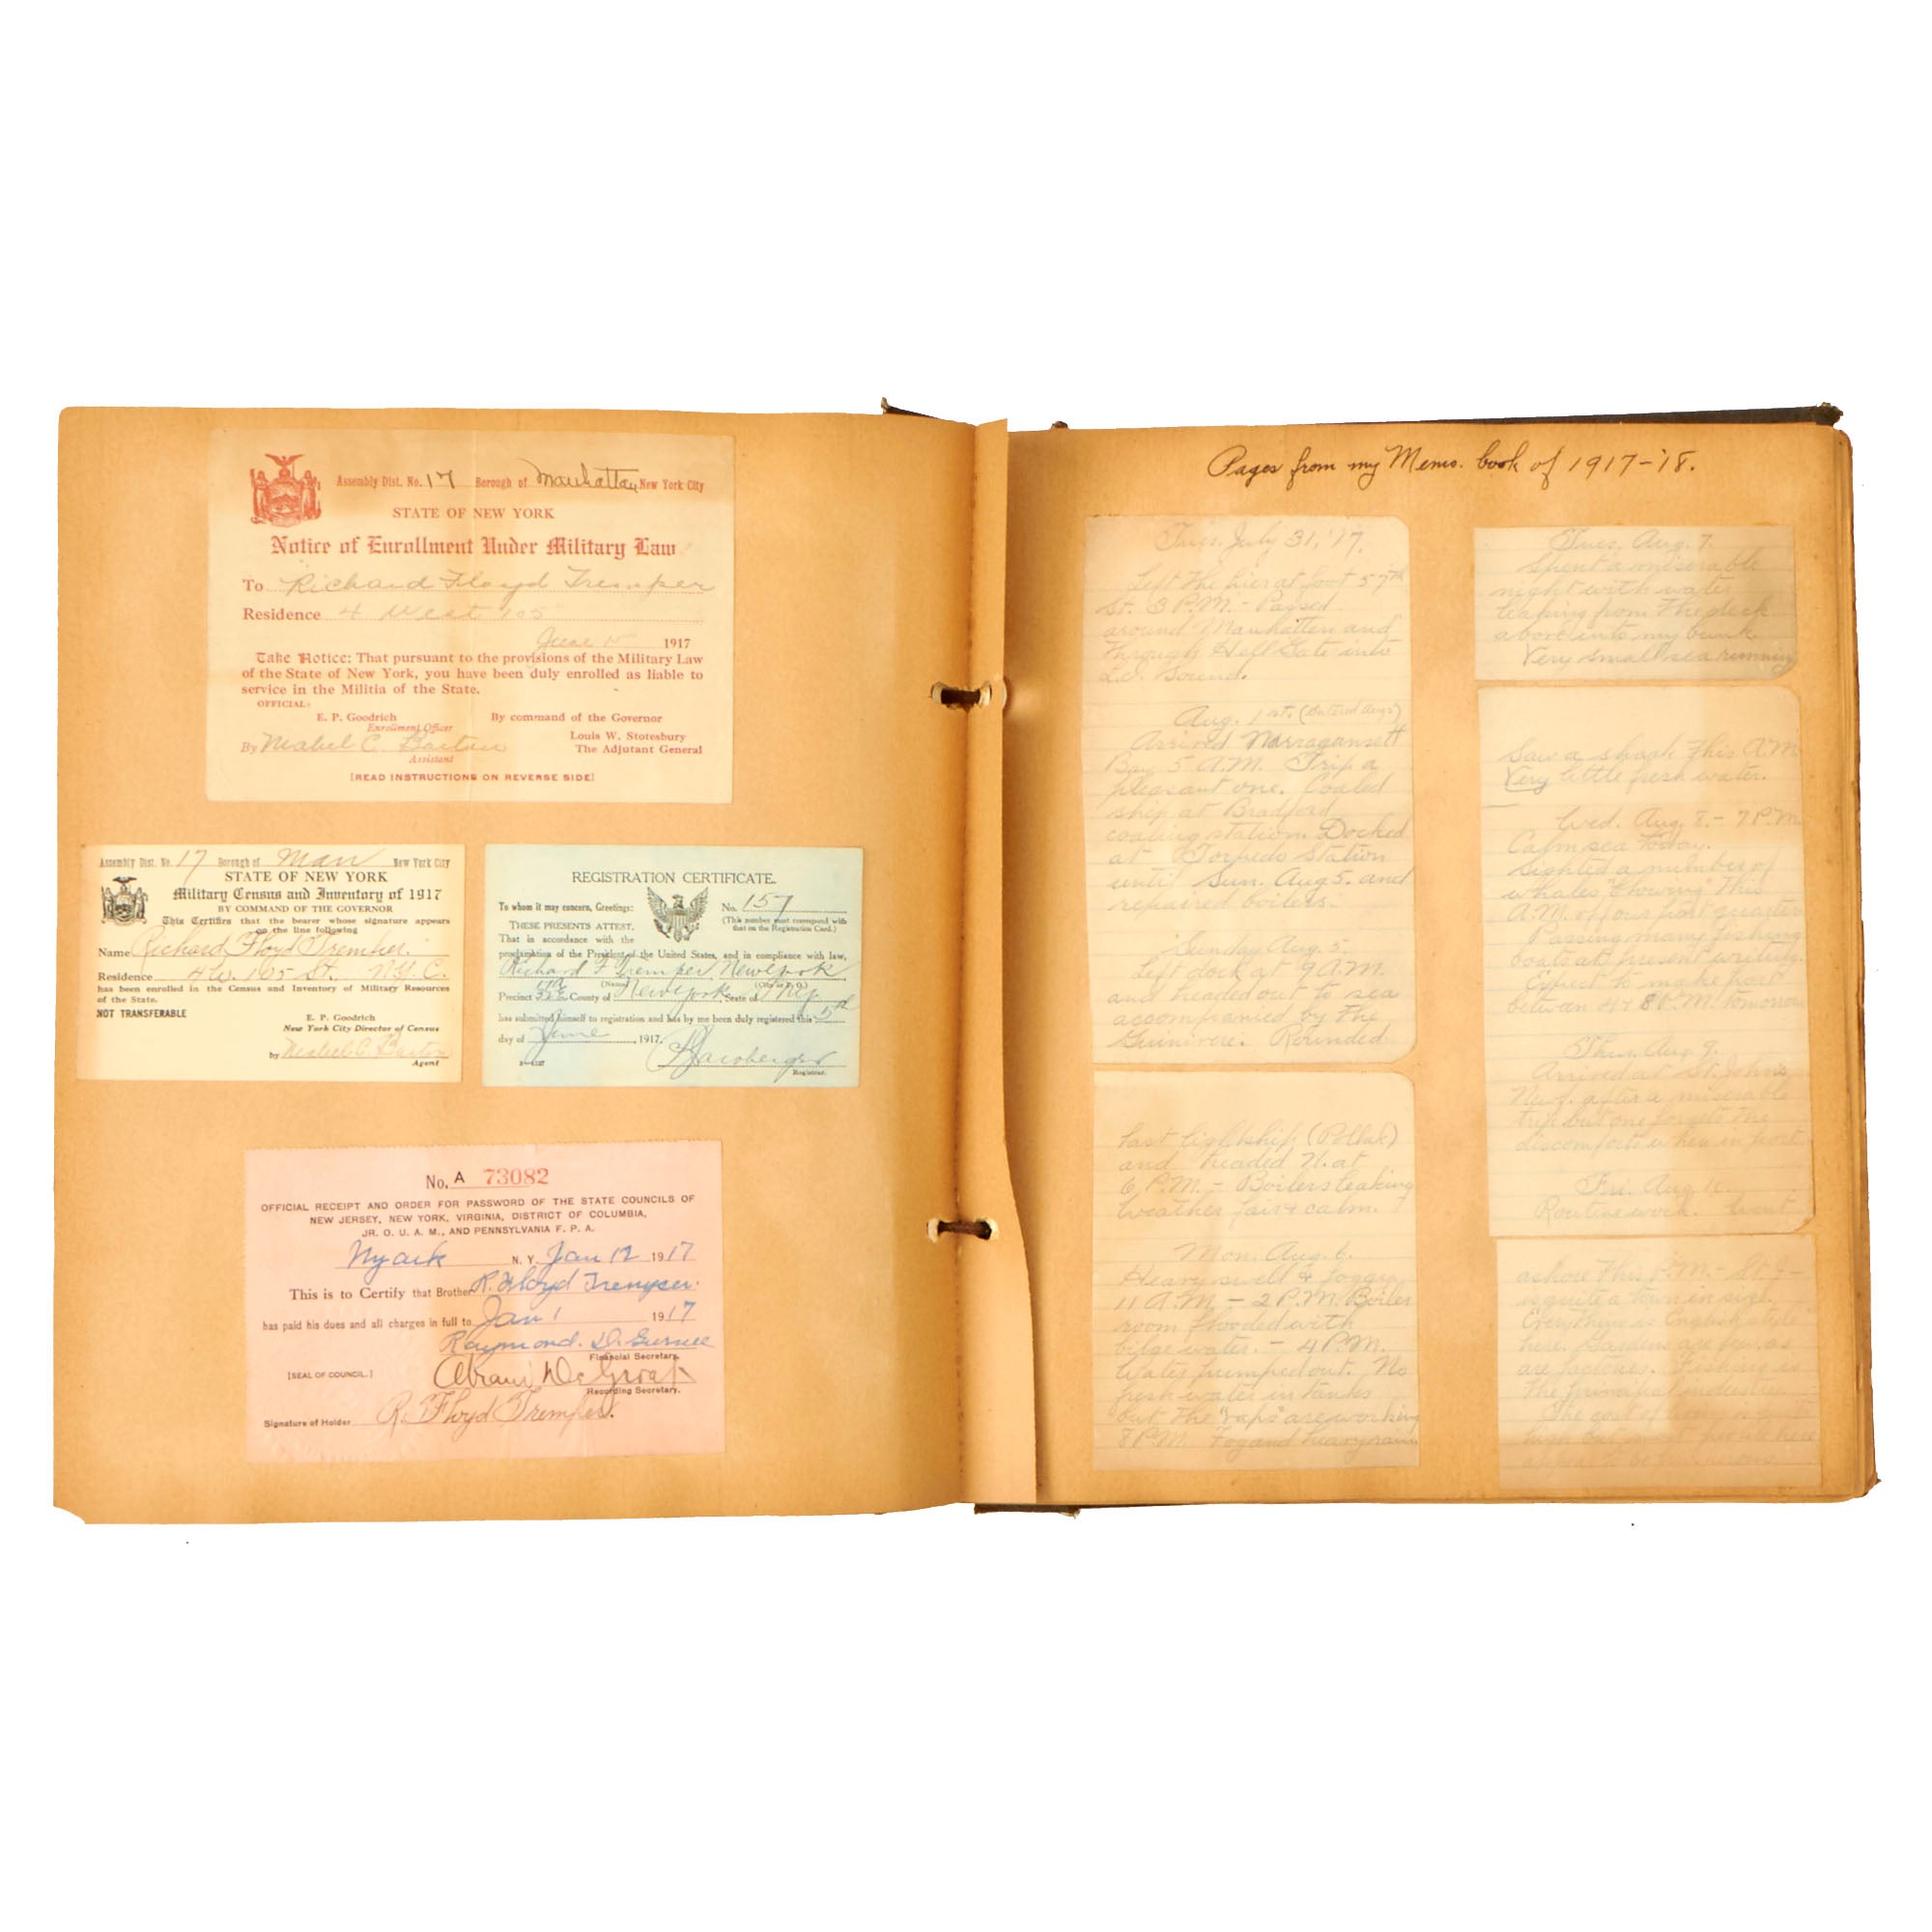 Assembly Dist. No. 17 Borough of Manhattan New York City
STATE OF NEW YORK
Notice of Enrollment Under Military Law
To Richard Floyd Tremper
Residence 4 West 105
June 1917
Take Notice: That pursuant to the provisions of the Military Law
of the State of New York, you have been duly enrolled as liable to
service in the Militia of the State.
OFFICIAL:
E. P. Goodrich By command of the Governor
Enrollment Officer
Louis W. Stotesbury
By Mabel C. Barton The Adjutant General
Assistant
[READ INSTRUCTIONS ON REVERSE SIDE]
Assembly Dist. No. 17 Borough of Man New York City
STATE OF NEW YORK
Military Census and Inventory of 1917
BY COMMAND OF THE GOVERNOR
This Certifies that the bearer whose signature appears
on the line following
Name Richard Floyd Tremper.
Residence 4 W. 105 St. N.Y.C.
has been enrolled in the Census and Inventory of Military Resources
of the State.
NOT TRANSFERABLE
E. P. Goodrich
New York City Director of Census
by Mabel C Barton
Agent
REGISTRATION CERTIFICATE.
To whom it may concern, Greetings: No. 157
(This number must correspond with
that on the Registration Card.)
THESE PRESENTS ATTEST,
That in accordance with the
proclamation of the President of the United States, and in compliance with law,
Richard F Tremper New York
(Name) (City or P. O.)
Precinct County of New York, State of N.Y.
has submitted himself to registration and has by me been duly registered this 5th
day of June, 1917.
Registrar.
No. A 73082
OFFICIAL RECEIPT AND ORDER FOR PASSWORD OF THE STATE COUNCILS OF
NEW JERSEY, NEW YORK, VIRGINIA, DISTRICT OF COLUMBIA,
JR. O. U. A. M., AND PENNSYLVANIA F. P. A.
Nyack N. Y. Jan 12 1917
This is to Certify that Brother R. Floyd Tremper.
has paid his dues and all charges in full to Jan 1 1917
Raymond. D. Gurnee
Financial Secretary.
[SEAL OF COUNCIL.] Abram DeGroat
Recording Secretary.
Signature of Holder R. Floyd Tremper.
Pages from my Memo. book of 1917-'18.
Tues. July 31, '17.
Left the pier at foot 57th
St. 3 P.M. - Passed
around Manhatten and
through Hell Gate into
L.I. Sound.
Aug. 1st.
Arrived Narragansett
Bay 5 A.M. Trip a
pleasant one. Coaled
ship at Bradford
coaling station. Docked
at Torpedo Station
until Sun. Aug 5. and
repaired boilers.
Sunday Aug. 5.
Left dock at 9 A.M.
and headed out to sea
accompanied by the
Guinivere. Rounded
last lightship (Pollak)
and headed N. at
6 P.M. - Boilers leaking
weather fair & calm.
Mon. Aug. 6.
Heavy swell & foggy
11 A.M. - 2 P.M. Boiler
room flooded with
bilge water. - 4 P.M.
Water pumped out. No
fresh water in tanks
but the "vaps" are working
8 P.M. Fog and heavy rain
Tues. Aug. 7.
Spent a miserable
night with water
leaking from the deck
above into my bunk.
Very small sea running
Saw a shark this A.M.
Very little fresh water.
Wed. Aug. 8. - 7 P.M.
Calm sea today.
Sighted a number of
whales "blowing" this
A.M. off our port quarter
Passing many fishing
boats at present writing.
Expect to make port
between 4 & 8 P.M. tomorrow
Thur. Aug 9.
Arrived at St. Johns
N.F. after a miserable
trip but one forgets the
discomforts when in port.
Fri. Aug
Routine work. Went
ashore this P.M. - St J -
is quite a town in size.
Everything is English style
here. Gardens are few, as
are factories.
the principal industries
The cost of living is quite
high but most people here
appear to be